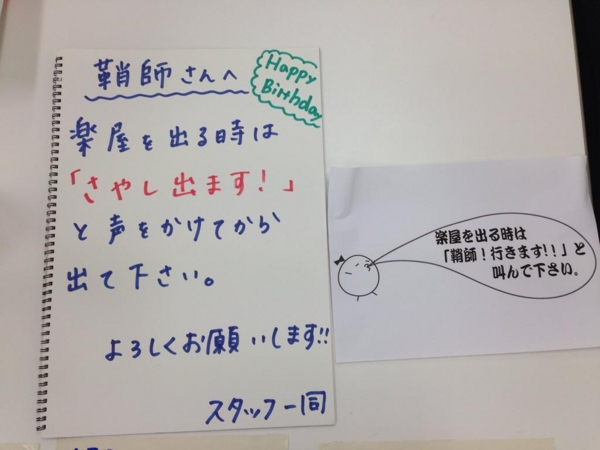 鞘師さんへ
Happy
Birthday
楽屋を出る時は
「さやし出ます!」
と声をかけてから
出て下さい。
よろしくお願いします!!
スタッフ一同
楽屋を出る時は
「鞘師!行きます!!」と
叫んで下さい。